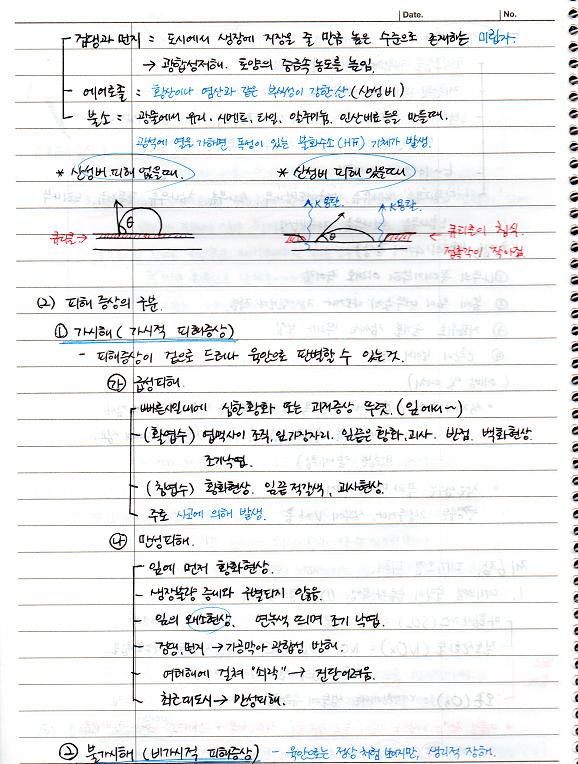 Date. No.
검댕과 먼지 = 도시에서 생장에 지장을 줄 만큼 높은 수준으로 존재하는 미립자.
→ 광합성저해. 토양의 중금속 농도를 높임.
에어로졸 = 황산이나 염산과 같은 부식성이 강한 산 (산성비)
불소 = 광물에서 유리, 시멘트, 타일, 알루미늄, 인산비료 등을 만들때.
광석에 열을 가하면 독성이 있는 불화수소(HF) 기체가 발생.
* 산성비 피해 없을때. * 산성비 피해 있을때
K용탈. K용탈.
θ θ
큐티클→ ← 큐티클이 침식.
접촉각이 작아짐
(2) 피해 증상의 구분.
① 가시해 (가시적 피해증상)
- 피해증상이 겉으로 드러나 육안으로 판별할 수 있는것.
㉮ 급성피해.
빠른시일내에 심한황화 또는 괴저증상 뚜렷. (잎에서~)
(활엽수) 엽맥사이 조직, 잎가장자리. 잎끝은 황화, 괴사. 반점. 백화현상.
조기낙엽.
(침엽수) 황화현상. 잎끝 적갈색, 괴사현상.
주로 사고에 의해 발생.
㉯ 만성피해.
잎에 먼저 황화현상.
생장불량 증세와 구별되지 않음.
잎의 왜소현상. 연녹색 띄며 조기 낙엽.
검댕, 먼지 → 기공막아 광합성 방해.
여러해에 걸쳐 "쇠락" → 진단어려움.
최근대도시 → 만성피해.
② 불가시해 (비가시적 피해증상) - 육안으로는 정상처럼 보이지만, 생리적 장해.